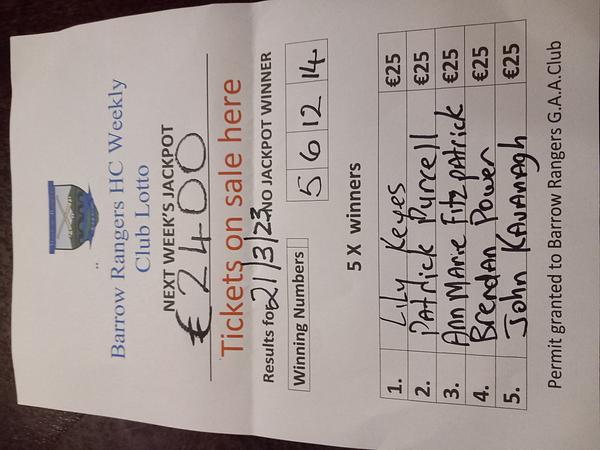 Barrow Rangers HC Weekly
Club Lotto
NEXT WEEK'S JACKPOT
€2400
Tickets on sale here
Results for 21/3/23 NO JACKPOT WINNER
Winning Numbers 5 6 12 14
5 X winners
1. Lily Keyes €25
2. Patrick Purcell €25
3. Ann Marie Fitzpatrick €25
4. Brendan Power €25
5. John Kavanagh €25
Permit granted to Barrow Rangers G.A.A.Club